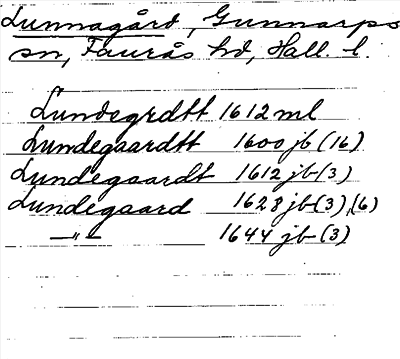 Lunnagård, Gunnarps
sn, Faurås hd, Hall. l.
Lundegrdtt 1612 ml
Lundegaardtt 1600 jb (16)
Lundegaardt 1612 jb (3)
Lundegaard 1628 jb (3), (6)
—"— 1644 jb (3)